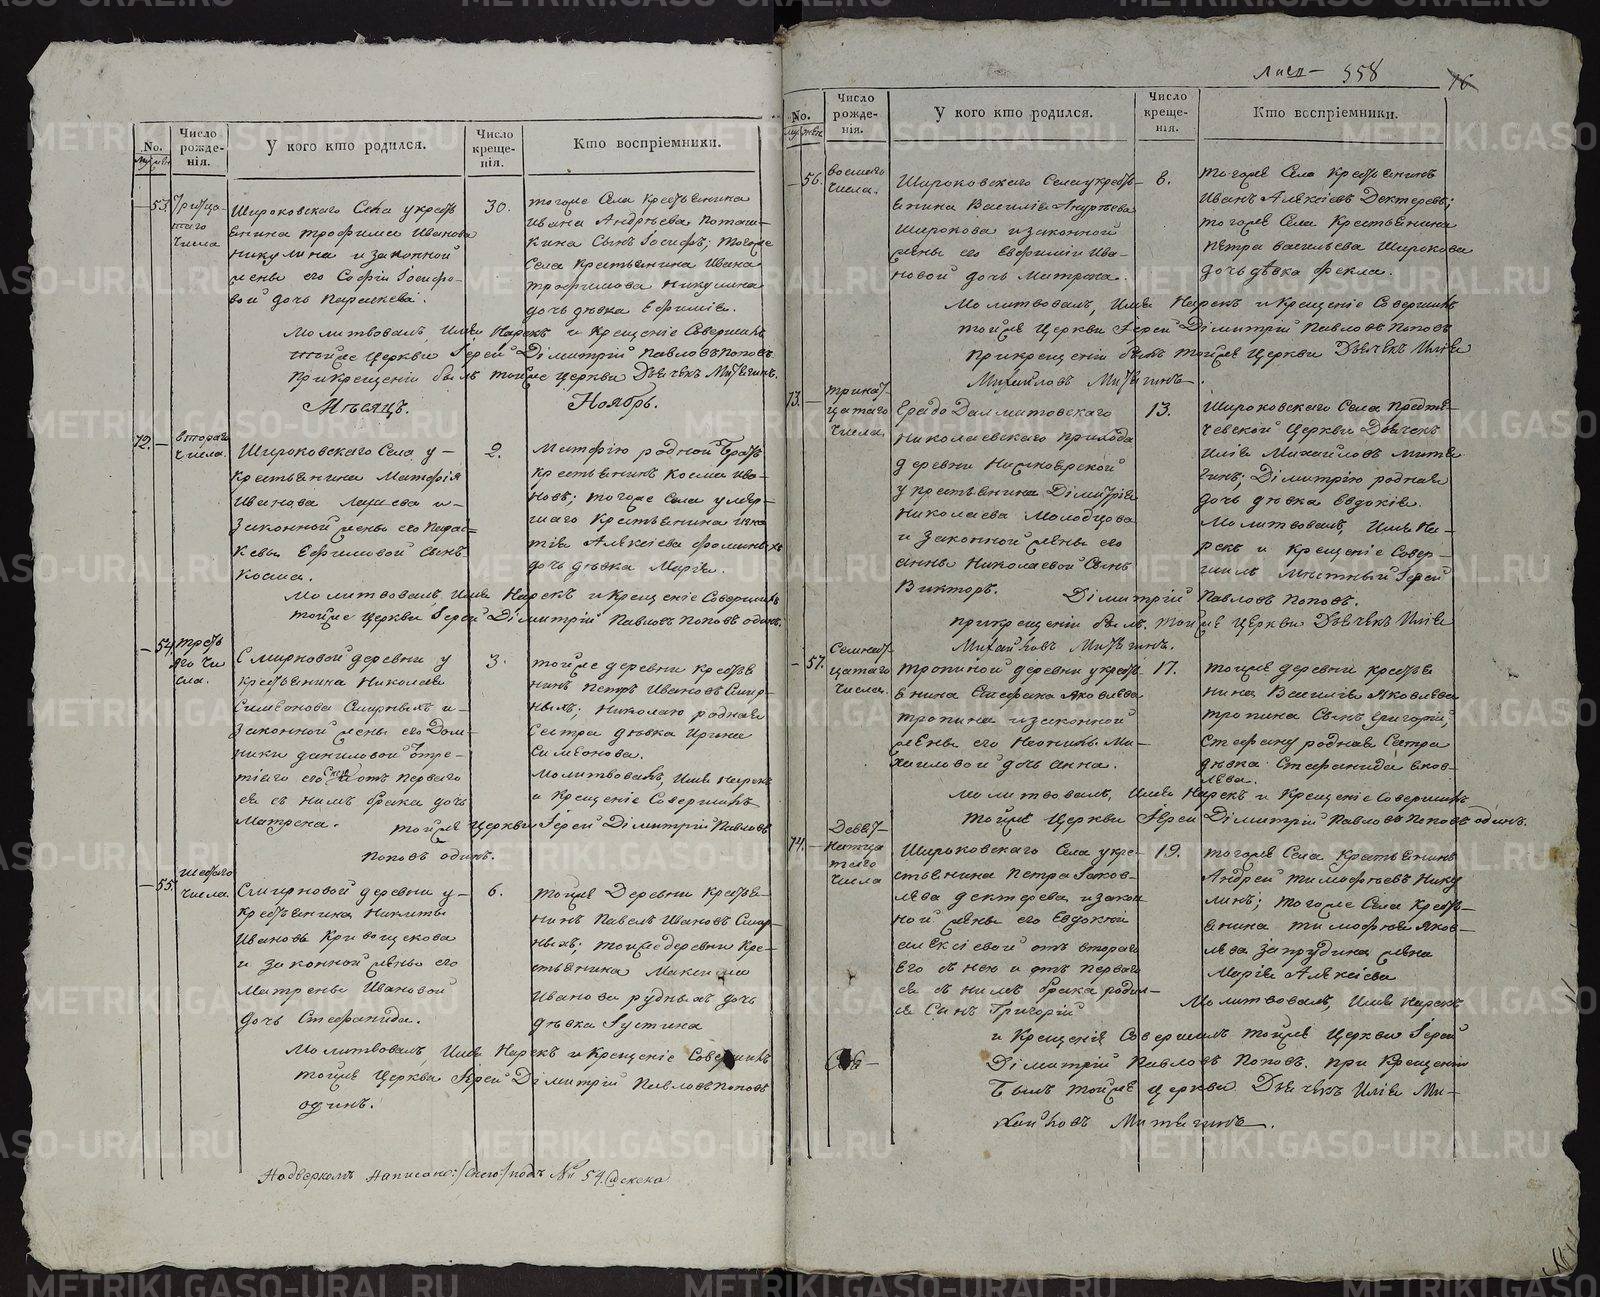 No.
Число рожде-нія.
У кого кто родился.
Число креще-нія.
Кто воспріемники.
53.
Тритца-
таго
числа
Широковскаго Села у кресть
янина Трофима Иванова
Никулина и законной
жены его Софіи Іосифо-
вой дочь Параскева.
30.
тогоже Села Крестьянина
Ивана Андрѣева Поташ-
кина Сынъ Іосифъ; тогоже
Села Крестьянина Ивана
Трофимова Никулина
дочь дѣвка Ефимія.
Молитвовалъ, Имя Нарекъ и Крещеніе Совершилъ
тойже Церкви Іерей Дімитрій Павловъ Поповъ.
При крещеніи былъ тойже Церкви Дьячекъ Митягинъ.
Мѣсяцъ.
Ноябрь.
72.
втораго
числа.
Широковскаго Села у
Крестьянина Матфія
Иванова и
Законной жены его Парас-
кевы Ефимовой сынъ
Косма.
2.
Матфію родной Братъ
Крестьянинъ Косма Ива-
новъ; тогоже Села умер-
шаго Крестьянина Игна
тія Алексіева Фоминыхъ
дочь дѣвка Марія.
Молитвовалъ, Имя Нарекъ и Крещеніе Совершилъ
тойже Церкви Іерей Дімитрій Павловъ Поповъ одинъ.
54.
треть
яго чи
сла.
Смирновой деревни у
Крестьянина Николая
Симеонова Смирныхъ и
Законной жены его Дом-
ники Даниловой от тре-
тіяго его съ нею а отъ перваго
ея съ нимъ брака дочь
Матрена.
3.
тойже деревни Крестья
нинъ Петръ Ивановъ Смир-
ныхъ; Николаю родная
Сестра дѣвка Ирина
Симеонова.
Молитвовалъ, Имя нарекъ
и Крещеніе Совершилъ
тойже Церкви Іерей Дімитрій Павловъ
Поповъ одинъ.
55.
шестаго
числа.
Смирновой деревни у
Крестьянина Никиты
Иванова Кривощекова
и законной жены его
Матрены Ивановой
дочь Стефанида.
6.
тойже Деревни Крестья-
нинъ Павелъ Ивановъ Смир-
ныхъ; тойже деревни Кре-
стьянина Максима
Иванова Рудныхъ дочь
дѣвка Іустина
Молитвовалъ, Имя Нарекъ и Крещеніе Совершилъ
тойже Церкви Іерей Дімитрій Павловъ Поповъ
одинъ.
Надверхомъ Написано: /снею:/ подъ № 54.
Лист 558
16
No.
Число рожде-нія.
У кого кто родился.
Число креще-нія.
Кто воспріемники.
56.
восмаго
числа.
Широковскаго Села у кресть-
янина Василія Андрѣева
Широкова и законной
жены его Евфиміи Ива-
новой дочь Матрена.
8.
тогоже Села Крестьянинъ
Иванъ Алексіевъ Дектеревъ;
тогоже Села Крестьянина
Петра Васильева Широкова
дочь дѣвка Фекла.
Молитвовалъ, Имя Нарекъ и Крещеніе Совершилъ
тойже Церкви Іерей Дімитрій Павловъ Поповъ
При крещеніи былъ тойже Церкви Дьячекъ Илія
Михайловъ Митягинъ.
73.
трина-
цатаго
числа.
Града Далматовскаго
Николаевскаго прихода
деревни
у крестьянина Дімитрія
Николаева Молодцова
и законной жены его
Анны Николаевой Сынъ
Викторъ.
13.
Широковскаго Села Предте-
чевской Церкви Дьячекъ
Илія Михайловъ Митя
гинъ; Дімитрію родная
дочь дѣвка Евдокія.
Молитвовалъ, Имя На-
рекъ и Крещеніе Совер-
шилъ Мѣстный Іерей
Дімитрій Павловъ Поповъ.
при крещеніи былъ тойже Церкви Дьячекъ Илія
Михайловъ Митягинъ.
57.
Семнат-
цатаго
числа.
Тропиной деревни у кресть-
янина Стефана Яковлева
Тропина и законной
жены его Неонилы Ми-
хаиловой дочь Анна.
17.
тойже деревни Крестья
нина Василія Яковлева
Тропина Сынъ Григорій;
Стефану родная Сестра
дѣвка Стефанида Яков-
лева.
Молитвовалъ, Имя Нарекъ и Крещеніе Совершилъ
тойже Церкви Іерей Дімитрій Павловъ Поповъ одинъ.
74.
Девят-
натца
таго
числа
Широковскаго Села у кре-
стьянина Петра Іаков-
лева Дектерева и закон
ной жены его Евдокіи
Алексіевой отъ втораго
Его съ нею и отъ перваго
ея съ нимъ брака родил-
ся Сынъ Григорій
19.
тогоже Села Крестьянинъ
Андрей Тимофѣевъ Нику
линъ; тогоже Села Кресть-
янина Тимофея Яков-
лева Запрудина жена
Марія Алексіева
Молитвовалъ, Имя Нарекъ
и Крещеніе Совершилъ тойже Церкви Іерей
Дімитрій Павловъ Поповъ. при Крещеніи
былъ тойже церкви Дьячекъ Илія Ми-
хайловъ Митягинъ.
METRIKI.GASO-URAL.RU